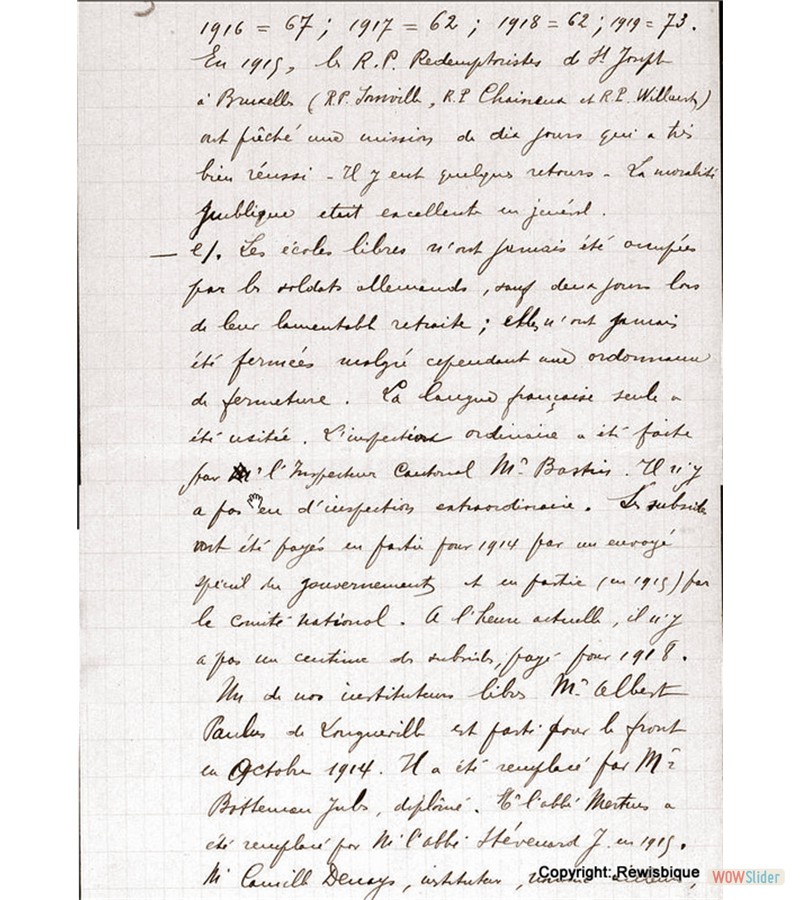 1916 = 67 ; 1917 = 62 ; 1918 = 62 ; 1919 = 73.
En 1915, les R.P. Redemptoristes de St Joseph
à Bruxelles (R.P. Joinville, R.P. Chaineux et R.P. Willaert)
ont prêché une mission de dix jours qui a très
bien réussi - Il y eut quelques retours - La moralité
publique etait excellente en général.
— e/. Les écoles libres n'ont jamais été occupées
par les soldats allemands, sauf deux jours lors
de leur lamentable retraite ; elles n'ont jamais
été fermées malgré cependant une ordonnance
de fermeture. La langue française seule a
été usitée. L'inspection ordinaire a été faite
par l'Inspecteur Cantonal Mr Bastin. Il n'y
a pas eu d'inspection extraordinaire. Les subsides
ont été payés en partie pour 1914 par un envoyé
spécial du gouvernement et en partie (en 1915) par
le comité national. A l'heure actuelle, il n'y
a pas un centime de subsides, payé pour 1918.
Un de nos instituteurs libres Mr Albert
Paulus de Longueville est parti pour le front
en Octobre 1914. Il a été remplacé par Mr
Botteman Jules, diplômé. Mr l'abbé Mertens a
été remplacé par Mr l'abbé Stévenard J. en 1915.
Mr Camille Denays, instituteur,
Copyright: Rewisbique
WOWSlider